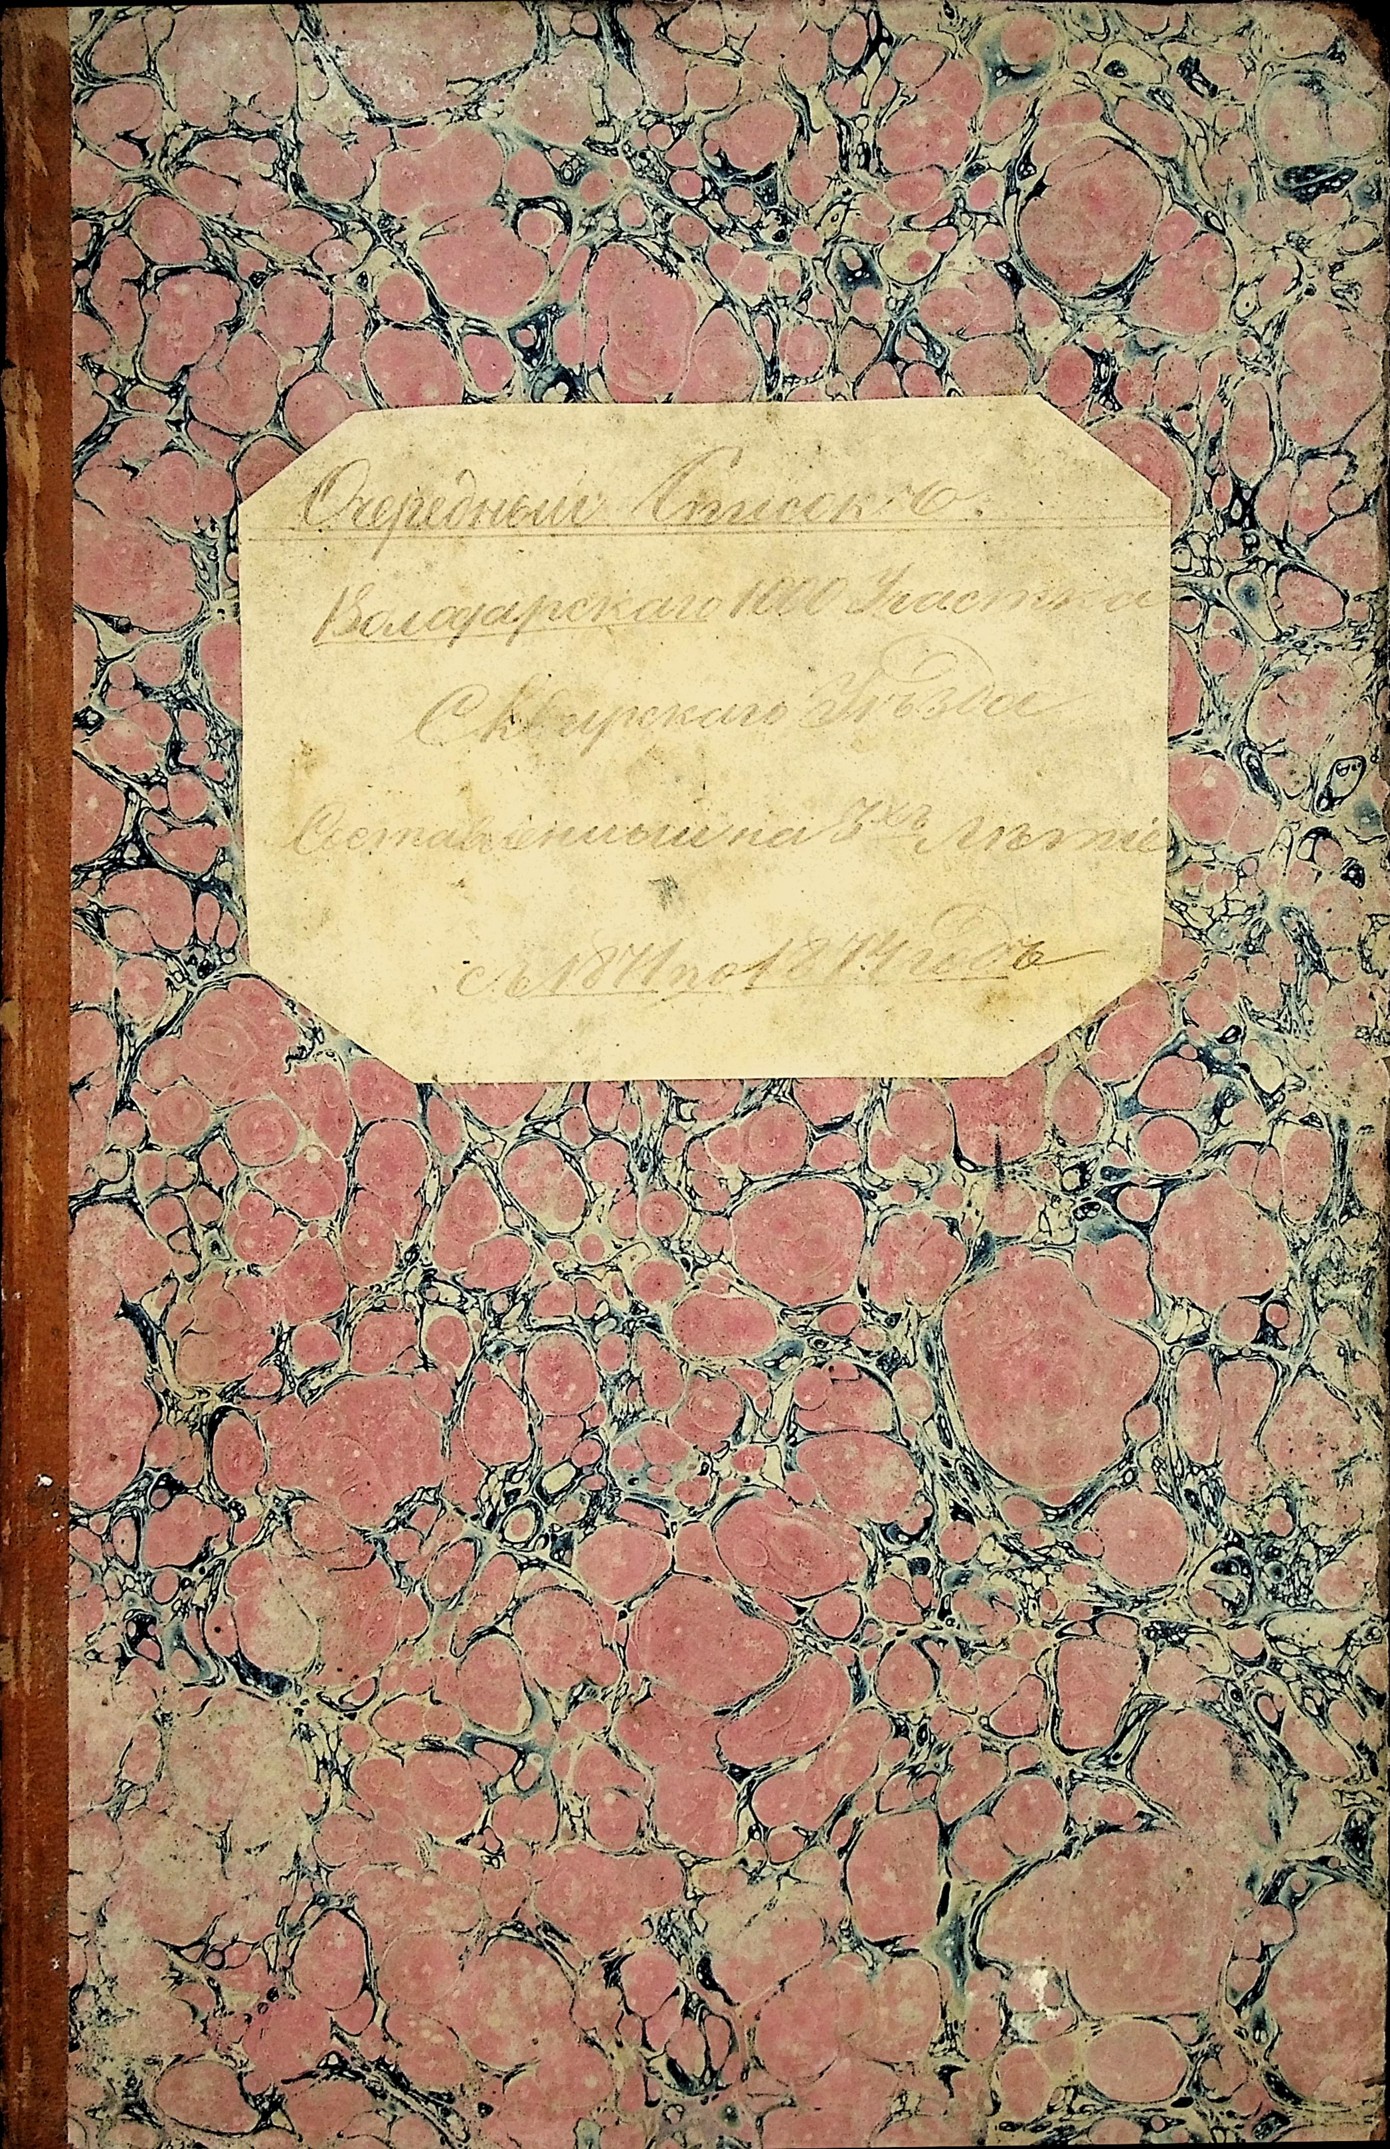 Очередный Списокъ
Володарскаго Участка
Сквирскаго Уѣзда
Составленный на 3хъ Лѣтіе
съ 1871 по 1874 годъ